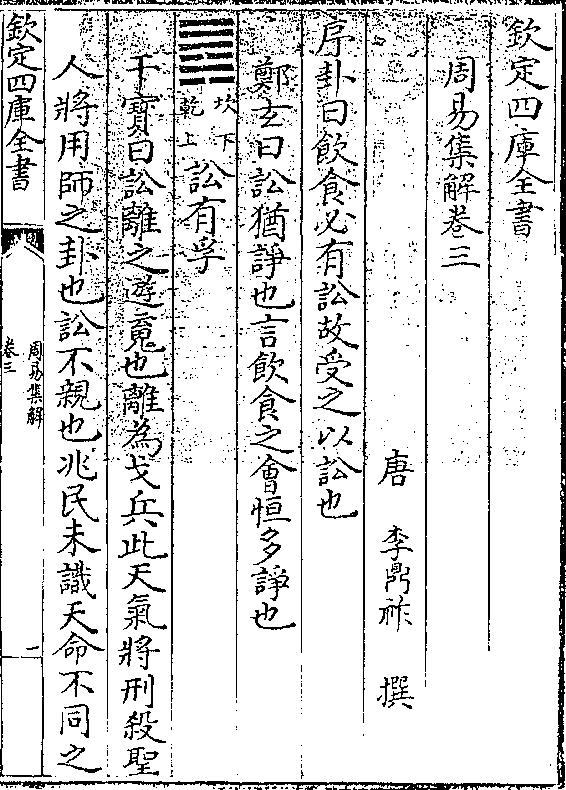 欽定四庫全書
周易集解卷三
唐 李鼎祚 撰
序卦曰飲食必有訟故受之以訟也
鄭玄曰訟猶諍也言飲食之會恒多諍也
坎下
乾上
訟有孚
干寳曰訟離之遊䰟也離為戈兵此天氣將刑殺聖
人將用師之卦也訟不親也兆民未識天命不同之
欽定四庫全書
周易集解
卷三
一